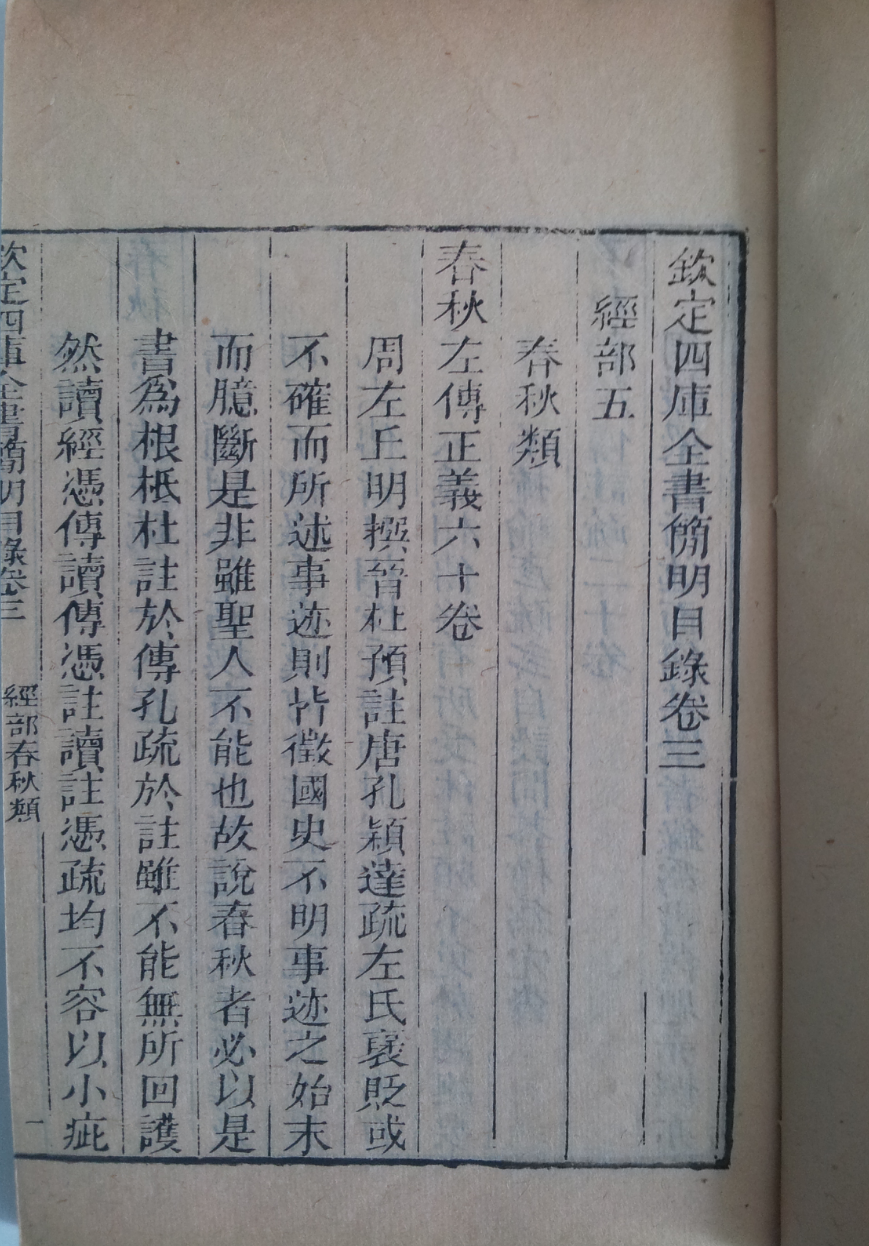 欽定四庫全書簡明目錄卷三
經部五
春秋類
春秋左傳正義六十卷
周左丘明撰晉杜預註唐孔穎達疏左氏襃貶或
不確而所述事迹則皆徵國史不明事迹之始末
而臆斷是非雖聖人不能也故說春秋者必以是
書爲根柢杜註於傳孔疏於註雖不能無所回護
然讀經憑傳讀傳憑註讀註憑疏均不容以小疵
欽定四庫全書簡明目錄卷三
經部春秋類
一